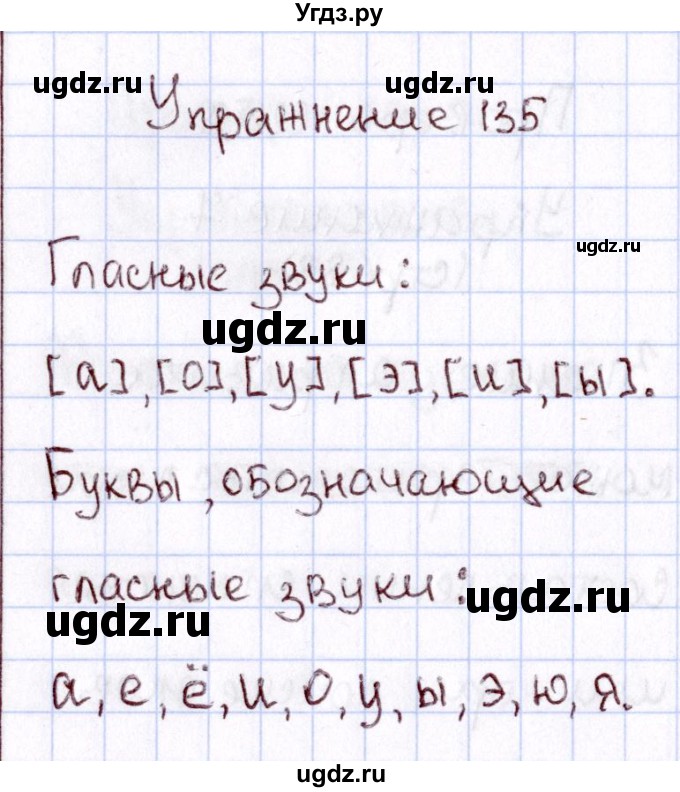 Угдз.ру
ugdz.ru ugdz.ru
Упражнение 135
ugdz.ru
Гласные звуки:
ugdz.ru
[а],[о],[у],[э],[и],[ы].
Буквы, обозначающие
гласные звуки:
ugdz.ru
ugdz.ru
а, е, ё, и, о, у, ы, э, ю, я.
ugdz.ru